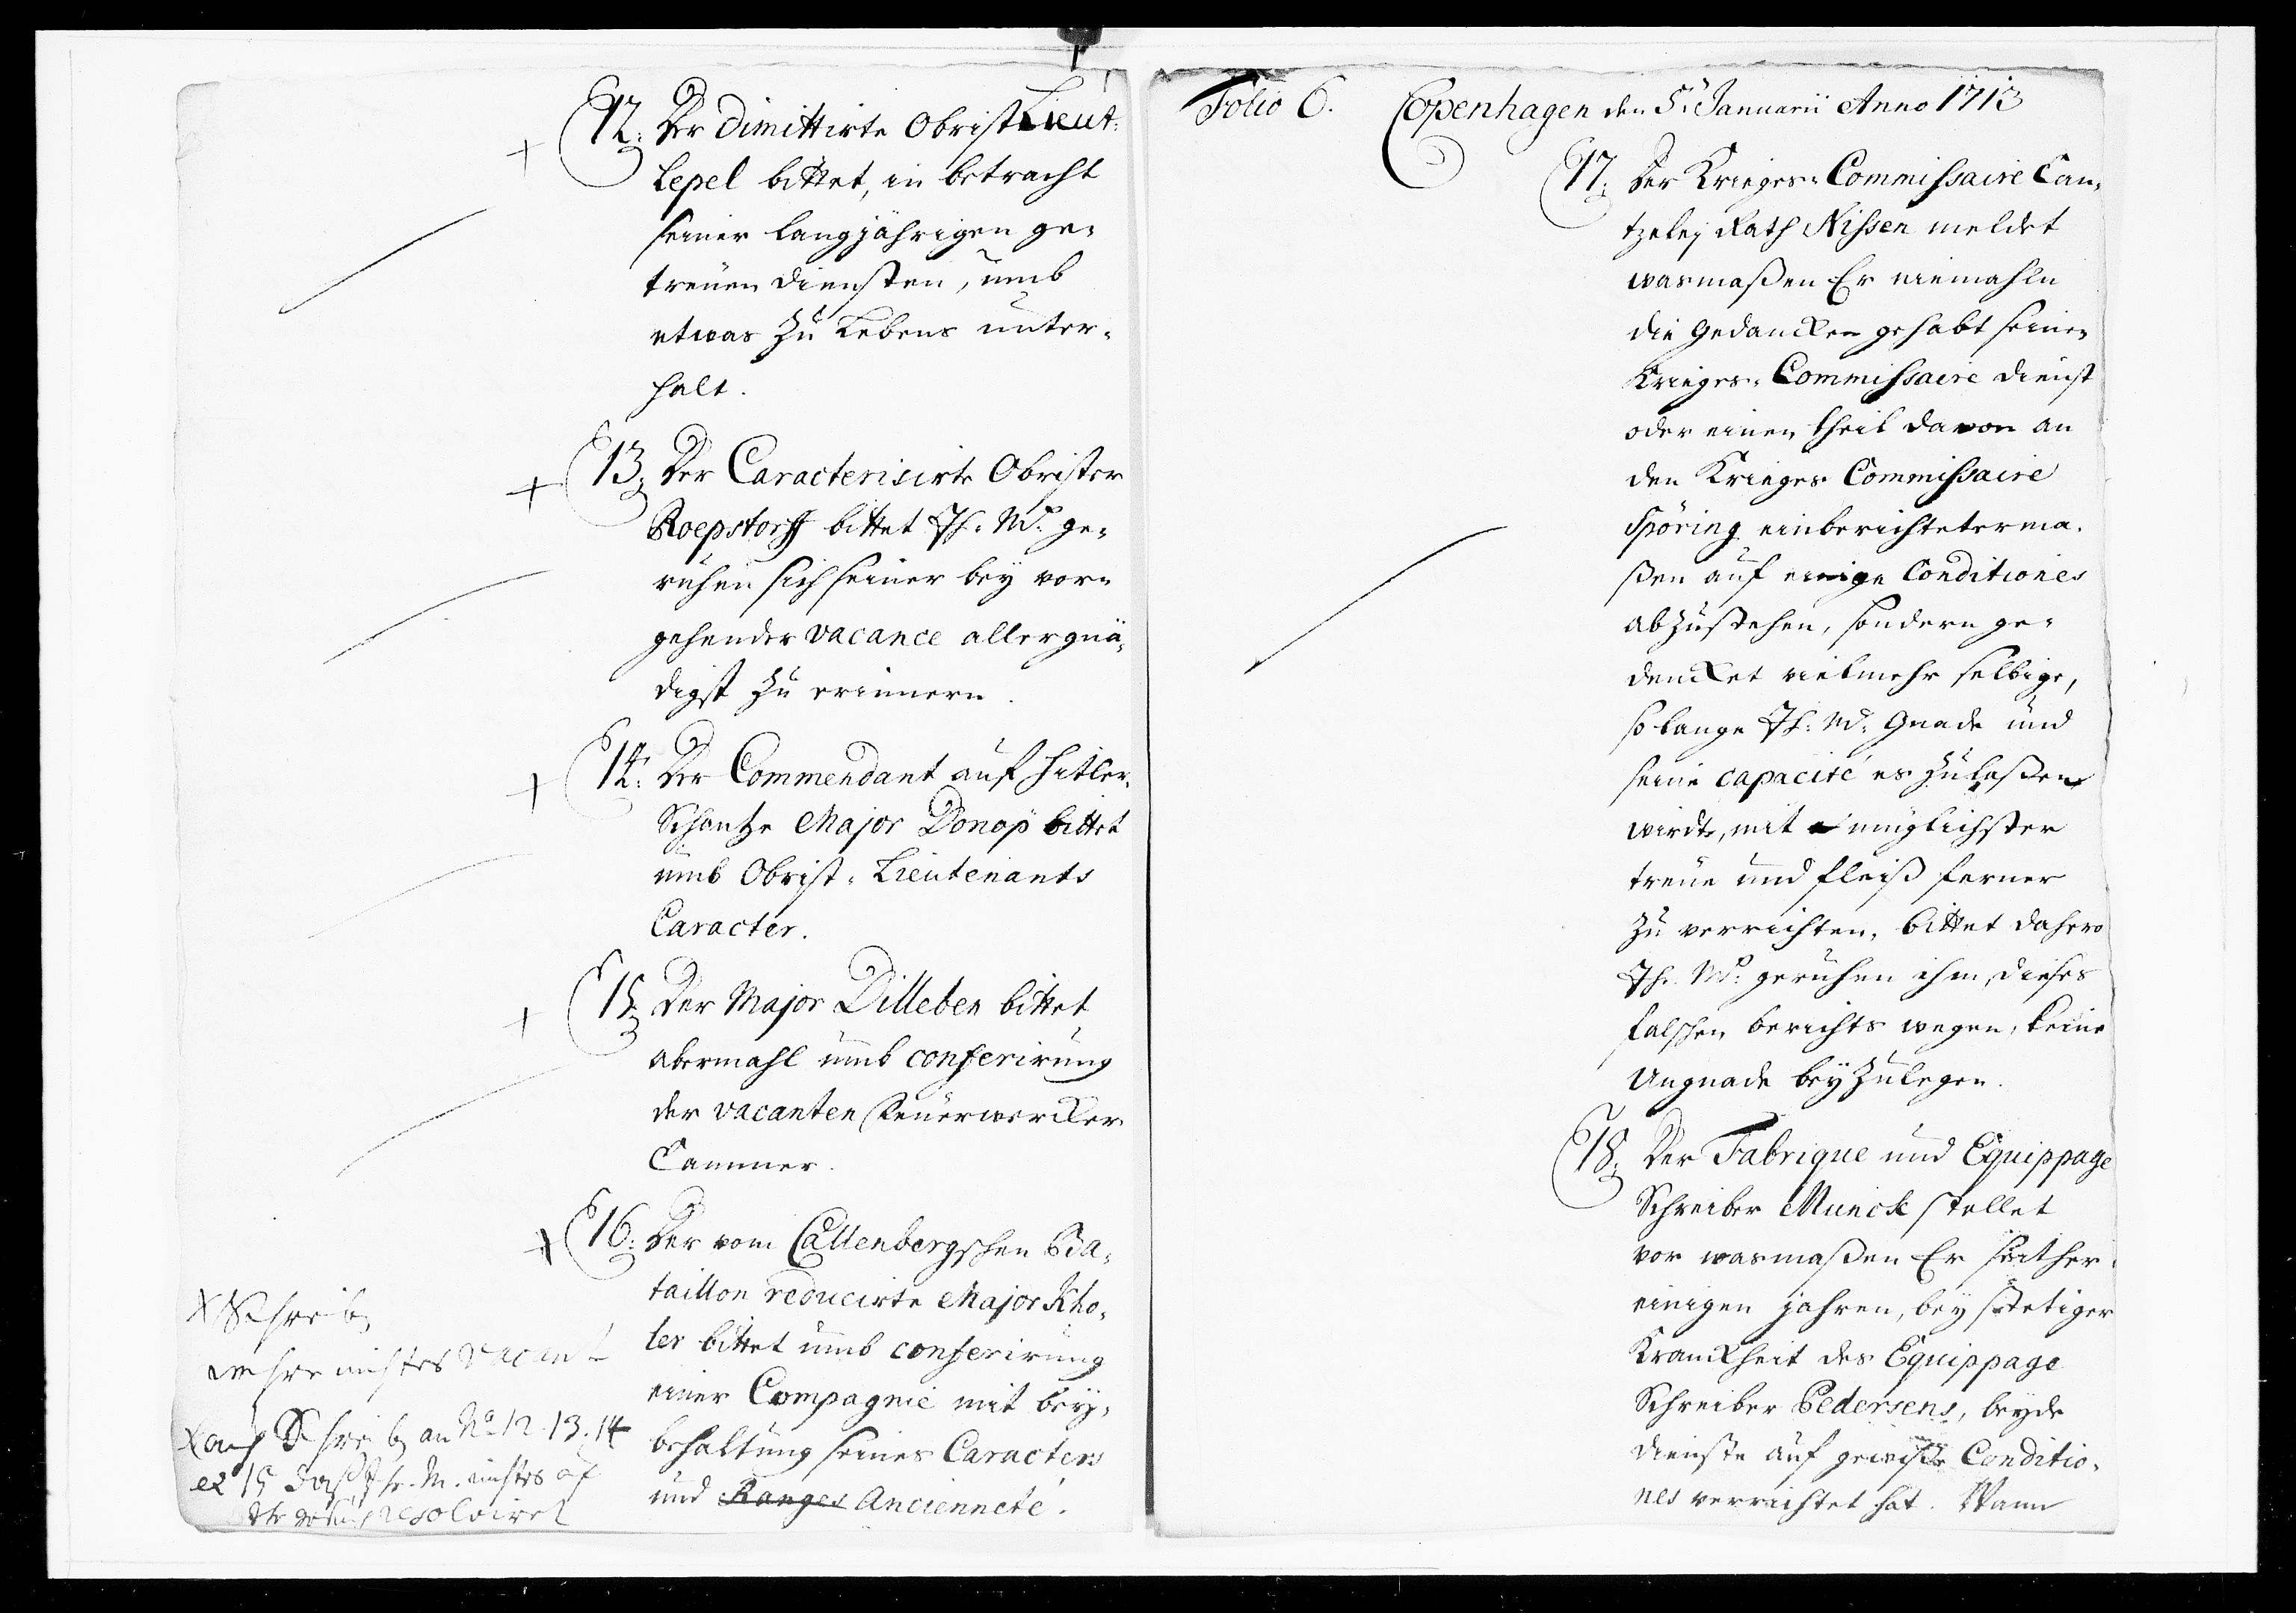 12. Der dimittirte Obrist Lieut:
Lepel bittet, in betracht
seiner langjährigen ge-
treuen diensten, umb
etwas zu Lebens unter-
halt.
13. Der Caracterisirte Obrister
Roepstorff bittet Ih: Mt. ge-
ruhen sich seiner bey vor-
gehender vacance allergnä-
digst zu erinnern.
14. Der Commendant auf Hitler-
Schantze Major Donop bittet
umb Obrist-Lieutenants
Caracter.
15. Der Major Dilleben bittet
abermahl umb conferirung
der vacanten Feuerwercker
Cammer.
16. Der vom Callenbergschen Ba-
taillon reducirte Major Kho-
ler bittet umb conferirung
einer Compagnie mit bey-
behaltung seines Caracters
und Ranges Ancienneté.
x Schreib
nichtes vacant
x auch Schreib an No 12. 13. 14
et 15 daß Ihr. M. nichtes
resolviret
Folio 6. Copenhagen den 5. Januarii Anno 1713
17. Der Krieges-Commissaire Can-
tzeley Rath Nissen meldet
wasmaßen Er niemahln
die Gedancken gehabt seinen
Krieges-Commissaire dienst
oder einen theil davon an
den Krieges Commissaire
Spöring einberichteterma-
ßen auf einige Conditiones
abzustehen, sondern ge-
dencket vielmehr selbige,
so lange Ih: Mt. Gnade und
seine capacité es zulaßen
wirdt, mit müglichster
treue und fleiß ferner
zu verrichten, bittet dahero
Ih. Mt. geruhen ihm, dieses
falschen berichts wegen, keine
Ungnade beyzulegen.
18. Der Fabrique und Equippage
Schreiber Munck stellet
vor wasmaßen Er seither
einigen jahren, bey stetiger
Kranckheit des Equippage
Schreiber Pedersens, beyde
dienste auf gewiße Conditio-
nes verrichtet hat. Wann